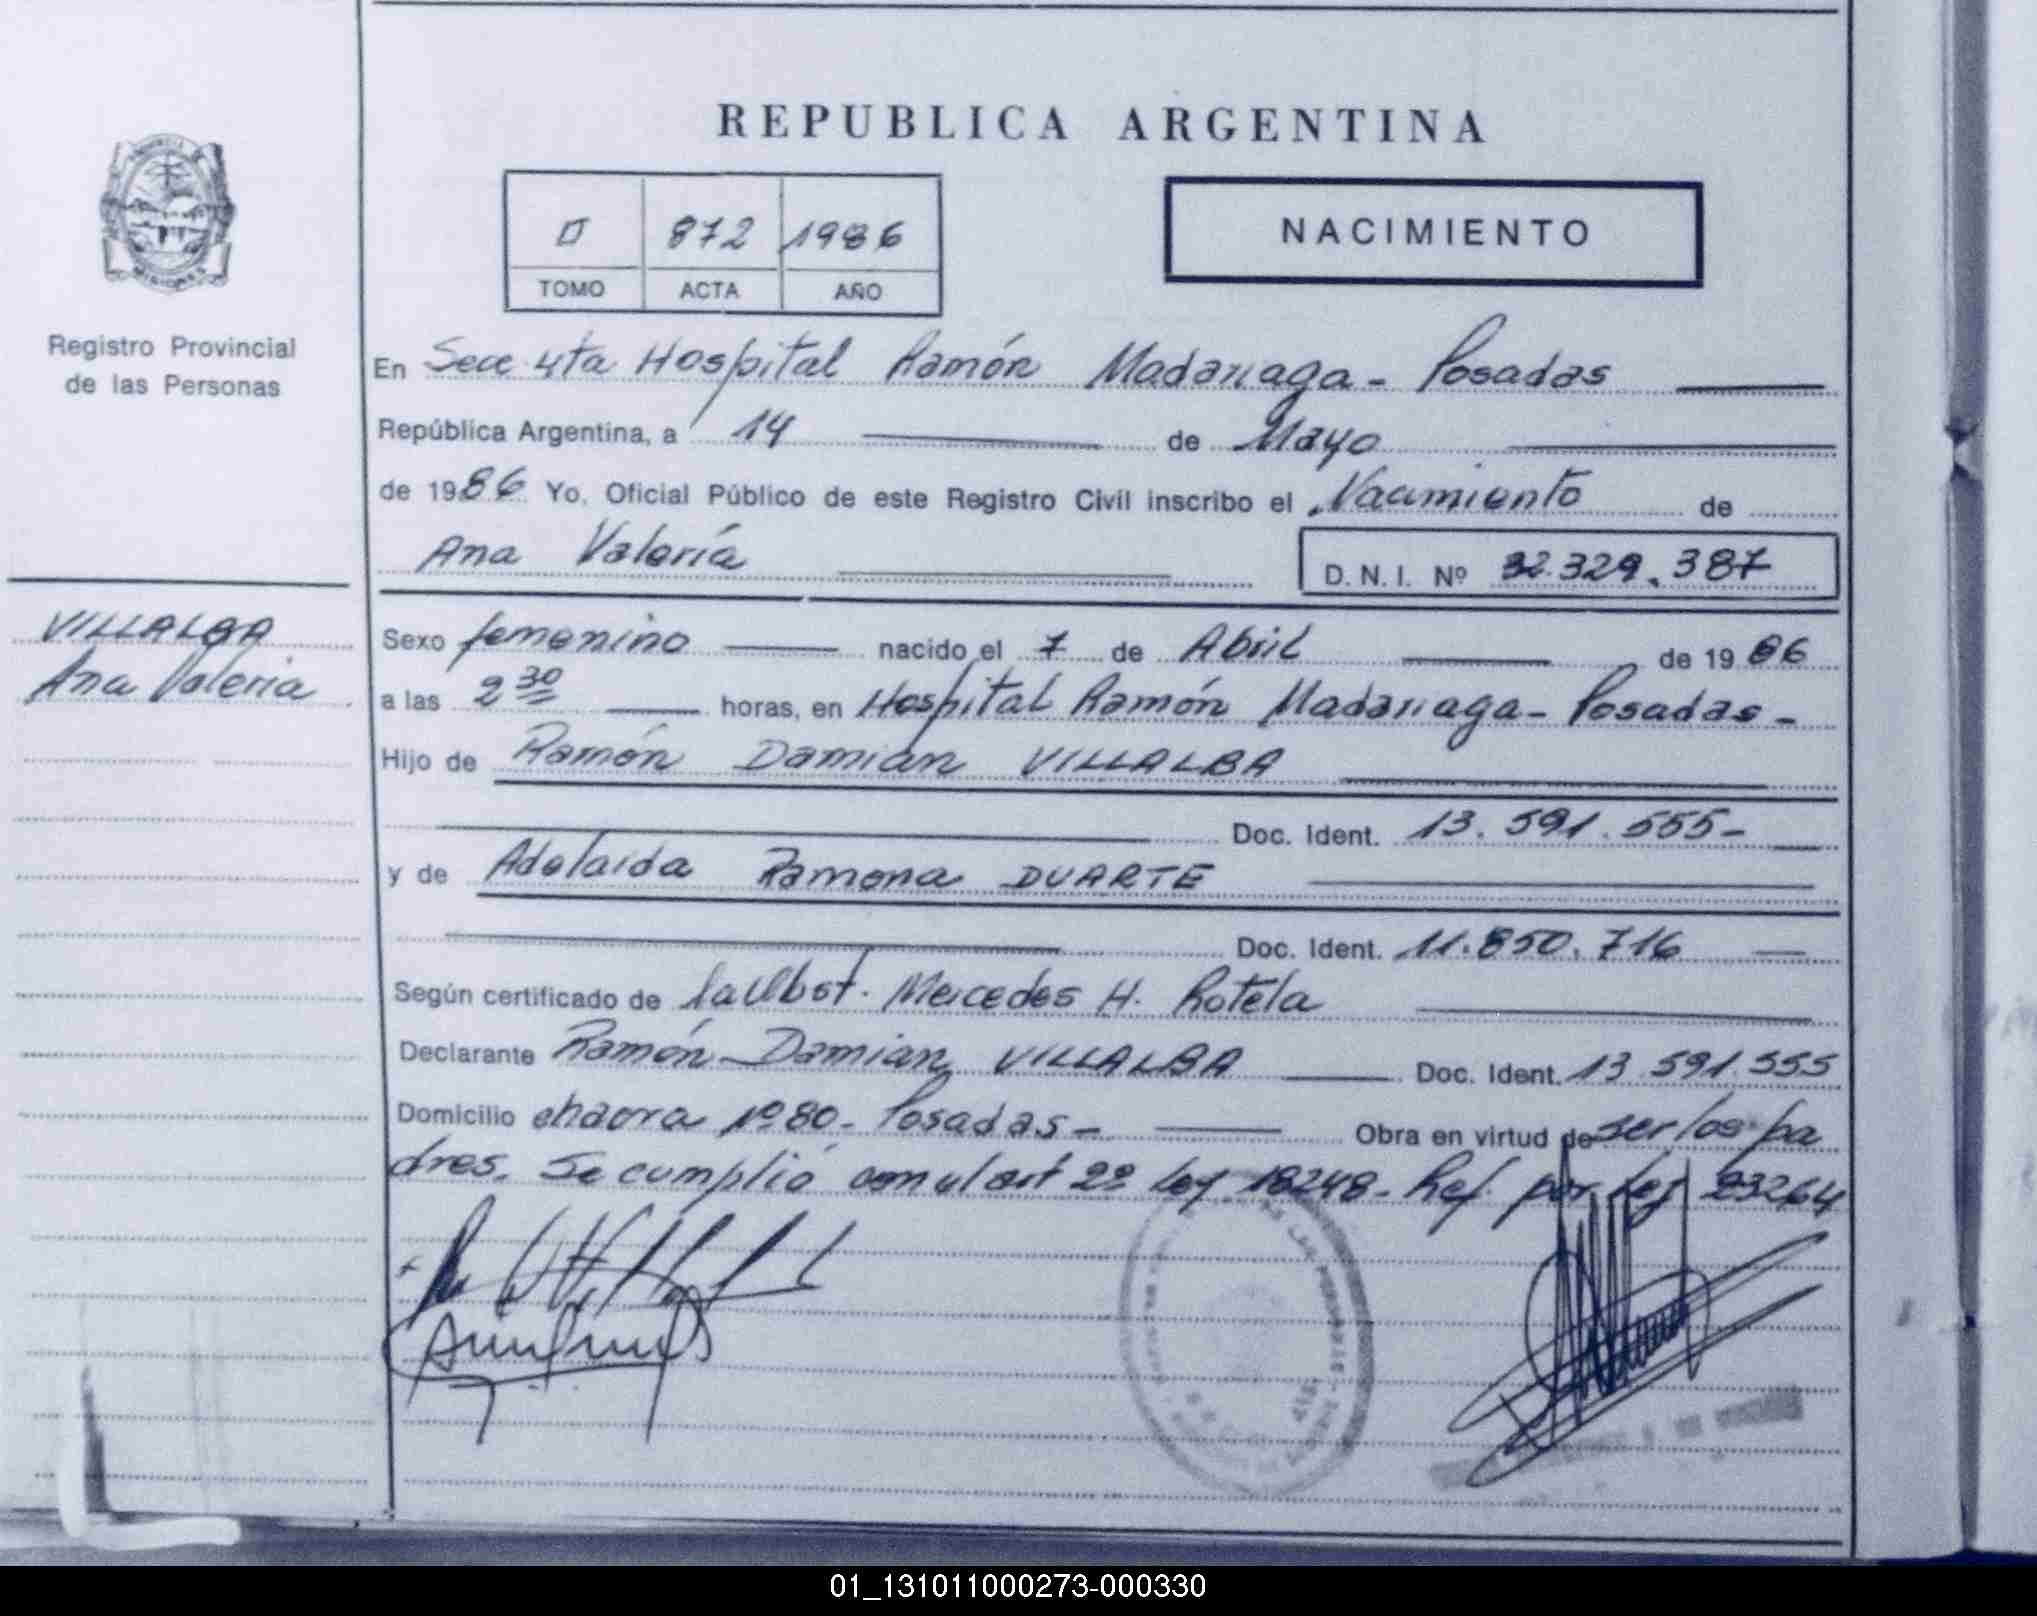 REPUBLICA ARGENTINA
872 1986
TOMO ACTA AÑO
NACIMIENTO
MISIONES
Registro Provincial
de las Personas
VILLALBA
Ana Valeria
En Secc 4ta Hospital Ramón Madariaga - Posadas
República Argentina, a 14 de Mayo
de 1986 Yo, Oficial Público de este Registro Civil inscribo el Nacimiento de
Ana Valeria D. N. I. Nº 32.329.387
Sexo femenino nacido el 7 de Abril de 1986
a las 2 30 horas, en Hospital Ramón Madariaga - Posadas -
Hijo de Ramón Damian VILLALBA
Doc. Ident. 13.591.555-
y de Adelaida Ramona DUARTE
Doc. Ident. 11.850.716
Según certificado de la Obst. Mercedes H. Rotela
Declarante Ramón Damian VILLALBA Doc. Ident. 13 591.555
Domicilio chacra Nº 80 - Posadas - Obra en virtud de ser los pa
dres. Se cumplió con el art 2º ley 18248 - Ref. por ley 23264
01_131011000273-000330